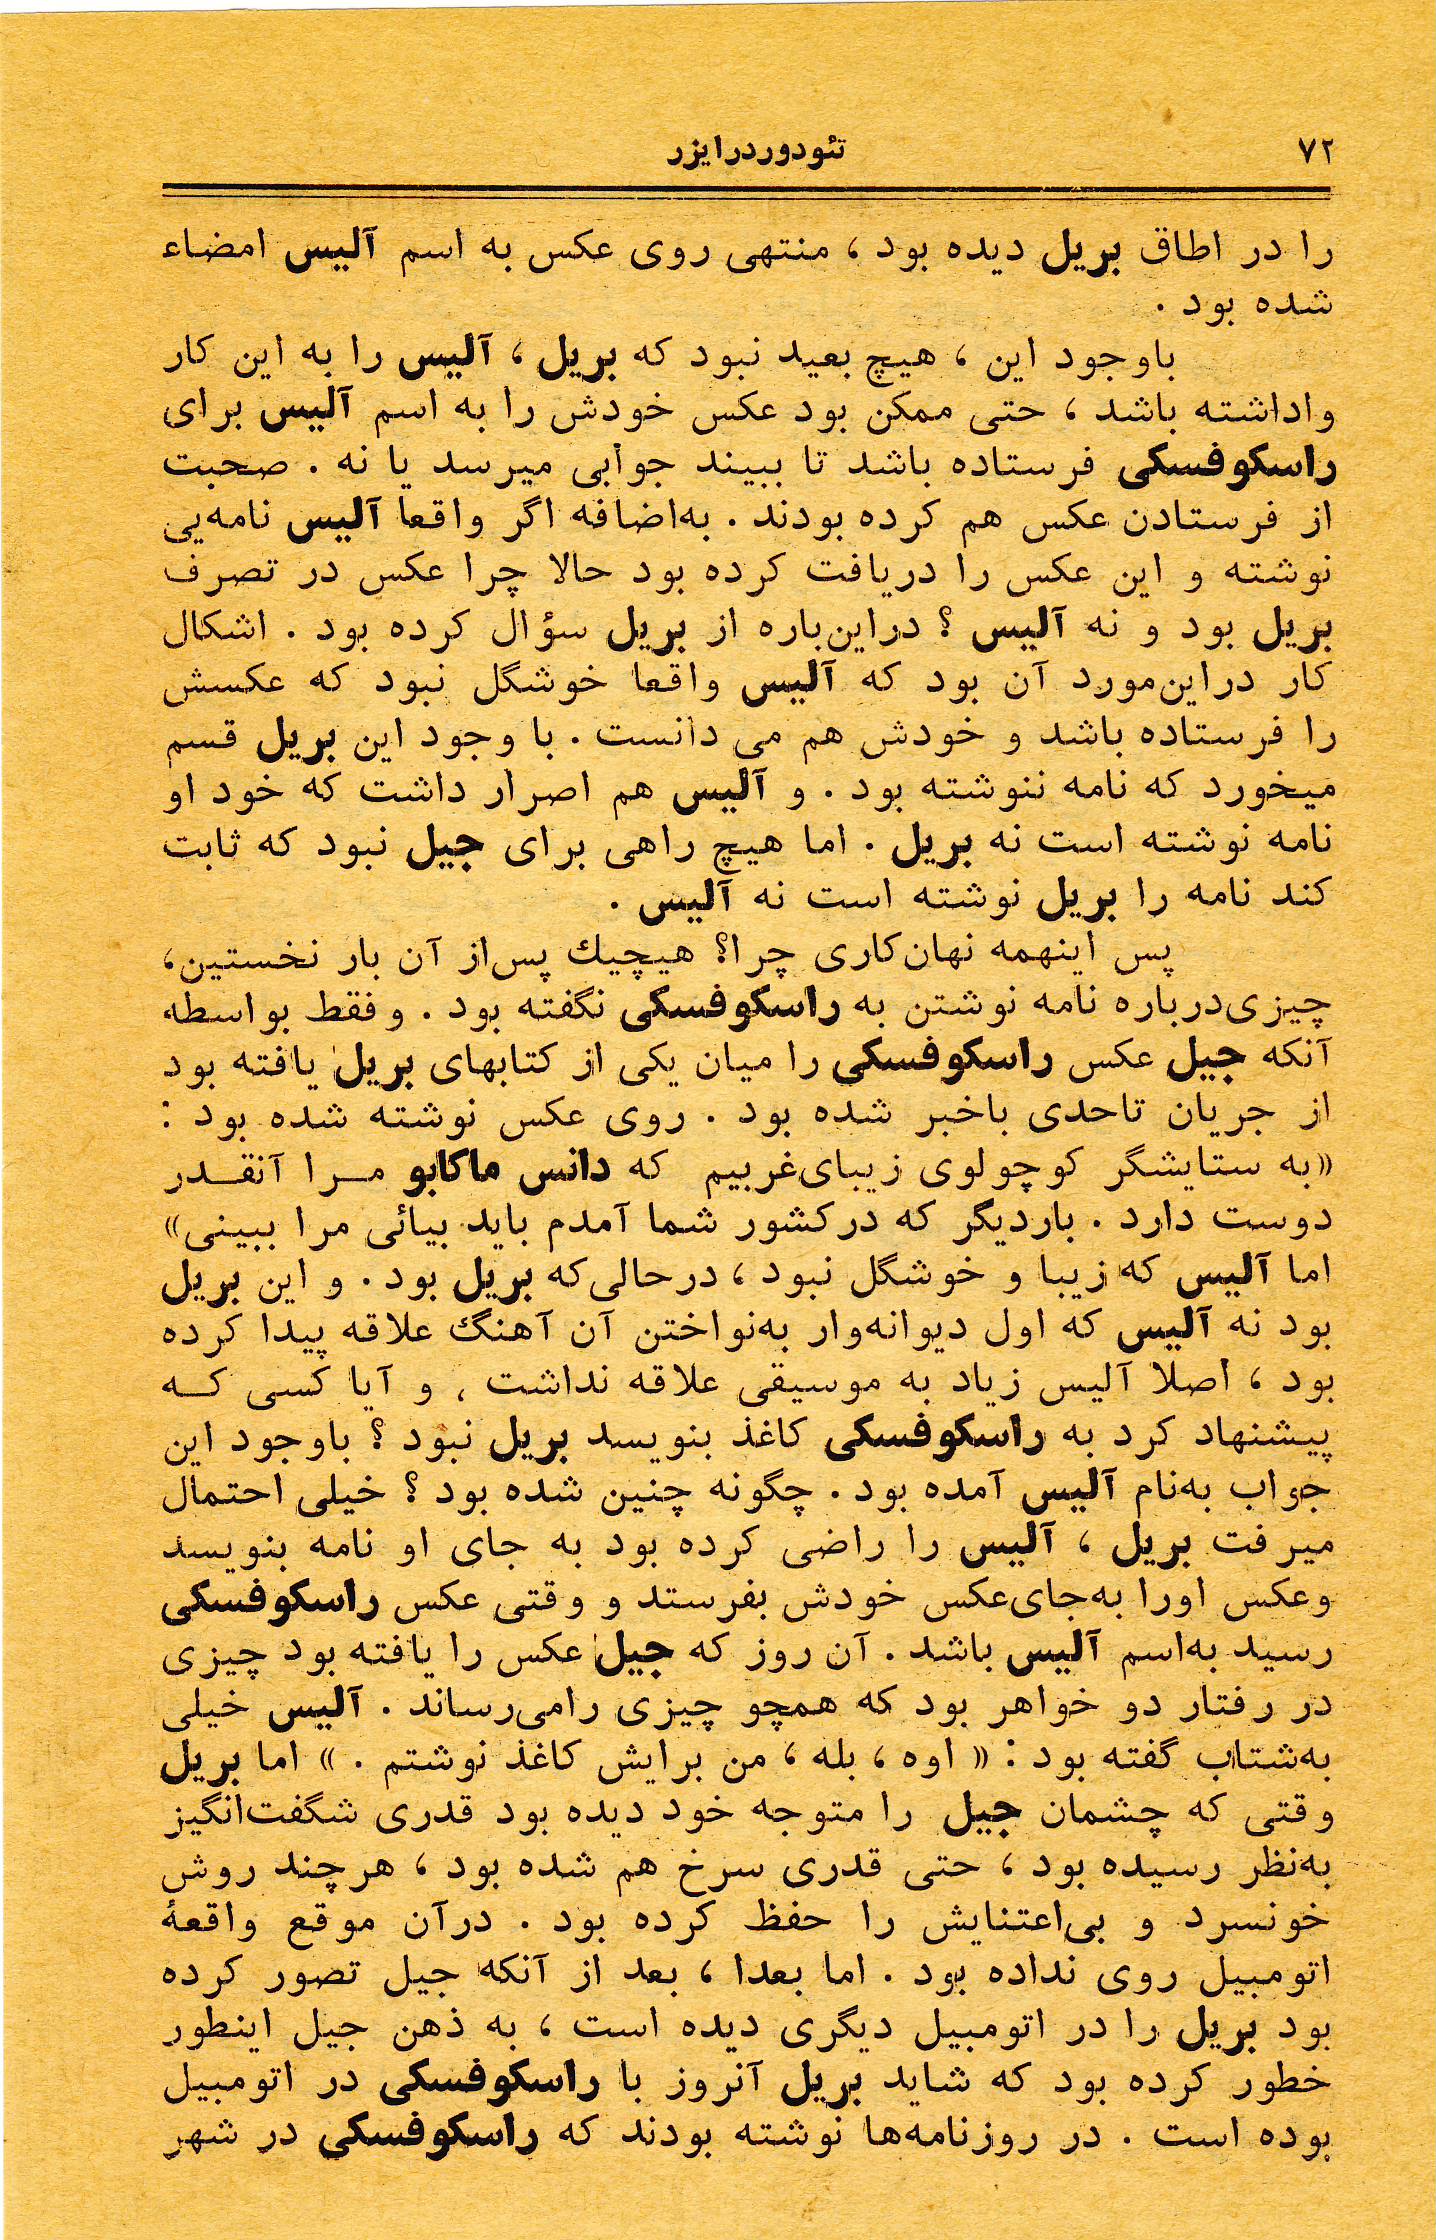 ۷۲
تئودوردرایزر
را در اطاق بریل دیده بود ، منتهی روی عکس به اسم آلیس امضاء
شده بود .
باوجود این ، هیچ بعید نبود که بریل ، آلیس را به این کار
واداشته باشد ، حتی ممکن بود عکس خودش را به اسم آلیس برای
راسکوفسکی فرستاده باشد تا ببیند جوابی میرسد یا نه . صحبت
از فرستادن عکس هم کرده بودند . به‌اضافه اگر واقعا آلیس نامه‌یی
نوشته و این عکس را دریافت کرده بود حالا چرا عکس در تصرف
بریل بود و نه آلیس ؟ دراین‌باره از بریل سؤال کرده بود . اشکال
کار دراین‌مورد آن بود که آلیس واقعا خوشگل نبود که عکسش
را فرستاده باشد و خودش هم می دانست . با وجود این بریل قسم
میخورد که نامه ننوشته بود . و آلیس هم اصرار داشت که خود او
نامه نوشته است نه بریل . اما هیچ راهی برای جیل نبود که ثابت
کند نامه را بریل نوشته است نه آلیس .
پس اینهمه نهان‌کاری چرا؟ هیچیك پس‌از آن بار نخستین،
چیزی‌درباره نامه نوشتن به راسکوفسکی نگفته بود . وفقط بواسطه
آنکه جیل عکس راسکوفسکی را میان یکی از کتابهای بریل یافته بود
از جریان تاحدی باخبر شده بود . روی عکس نوشته شده بود :
«به ستایشگر کوچولوی زیبای‌غربیم که دانس ماکابو مـرا آنقـدر
دوست دارد . باردیگر که درکشور شما آمدم باید بیائی مرا ببینی»
اما آلیس که زیبا و خوشگل نبود ، درحالی‌که بریل بود . و این بریل
بود نه آلیس که اول دیوانه‌وار به‌نواختن آن آهنگ علاقه پیدا کرده
بود ، اصلا آلیس زیاد به موسیقی علاقه نداشت ، و آیا کسی کـه
پیشنهاد کرد به راسکوفسکی کاغذ بنویسد بریل نبود ؟ باوجود این
جواب به‌نام آلیس آمده بود . چگونه چنین شده بود ؟ خیلی احتمال
میرفت بریل ، آلیس را راضی کرده بود به جای او نامه بنویسد
وعکس اورا به‌جای‌عکس خودش بفرستد و وقتی عکس راسکوفسکی
رسید به‌اسم آلیس باشد . آن روز که جیل عکس را یافته بود چیزی
در رفتار دو خواهر بود که همچو چیزی رامی‌رساند . آلیس خیلی
به‌شتاب گفته بود : « اوه ، بله ، من برایش کاغذ نوشتم . » اما بریل
وقتی که چشمان جیل را متوجه خود دیده بود قدری شگفت‌انگیز
به‌نظر رسیده بود ، حتی قدری سرخ هم شده بود ، هرچند روش
خونسرد و بی‌اعتنایش را حفظ کرده بود . درآن موقع واقعهٔ
اتومبیل روی نداده بود . اما بعدا ، بعد از آنکه جیل تصور کرده
بود بریل را در اتومبیل دیگری دیده است ، به ذهن جیل اینطور
خطور کرده بود که شاید بریل آنروز با راسکوفسکی در اتومبیل
بوده است . در روزنامه‌ها نوشته بودند که راسکوفسکی در شهر